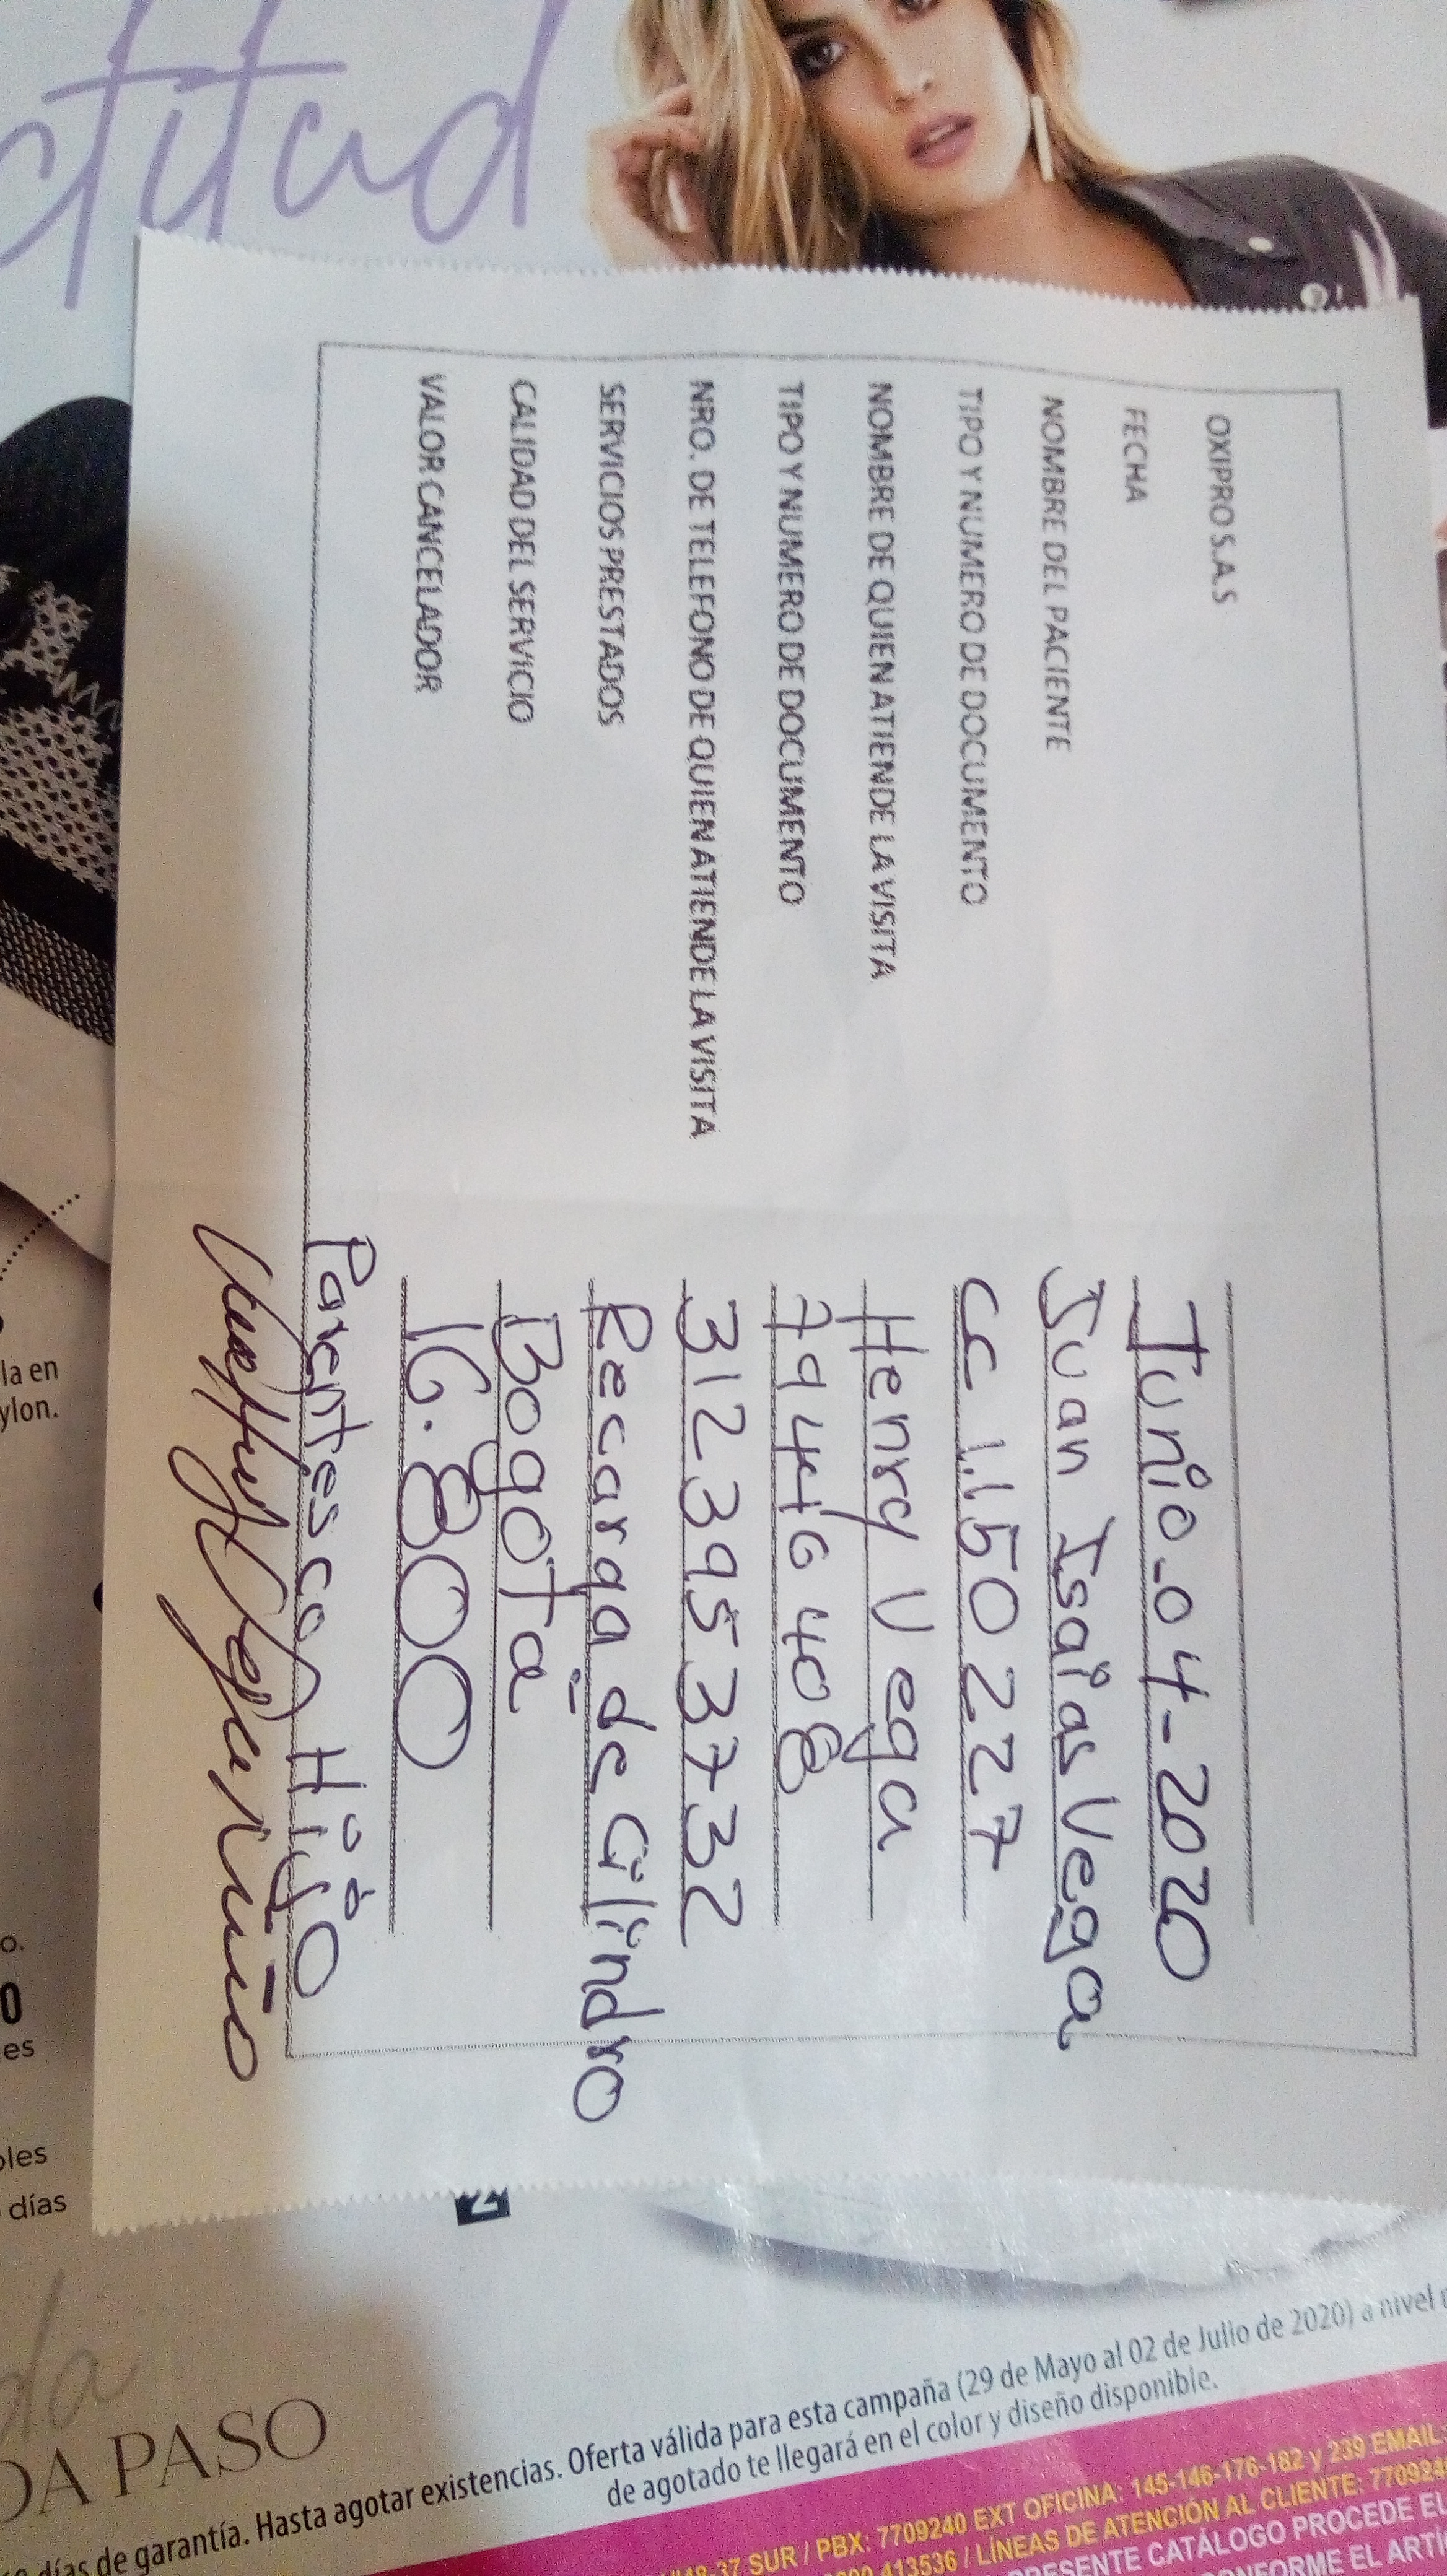 ctitud
OXIPRO S.A.S
FECHA Junio-04-2020
NOMBRE DEL PACIENTE Juan Isaias Vega
TIPO Y NUMERO DE DOCUMENTO CC 1.150227
NOMBRE DE QUIEN ATIENDE LA VISITA Henry Vega
TIPO Y NUMERO DE DOCUMENTO
NRO. DE TELEFONO DE QUIEN ATIENDE LA VISITA 3123953732
SERVICIOS PRESTADOS Recarga de Cilindro
CALIDAD DEL SERVICIO Bogota
VALOR CANCELADOR 16.800
Parentesco Hijo
la en
ylon.
o.
0
es
bles
días
da
DA PASO
días de garantía. Hasta agotar existencias. Oferta válida para esta campaña (29 de Mayo al 02 de Julio de 2020) a nivel
de agotado te llegará en el color y diseño disponible.
48-37 SUR / PBX: 7709240 EXT OFICINA: 145-146-176-182 y 239 EMAIL
413536 / LÍNEAS DE ATENCIÓN AL CLIENTE: 770924
PRESENTE CATÁLOGO PROCEDE EL
CONFORME EL ARTÍ